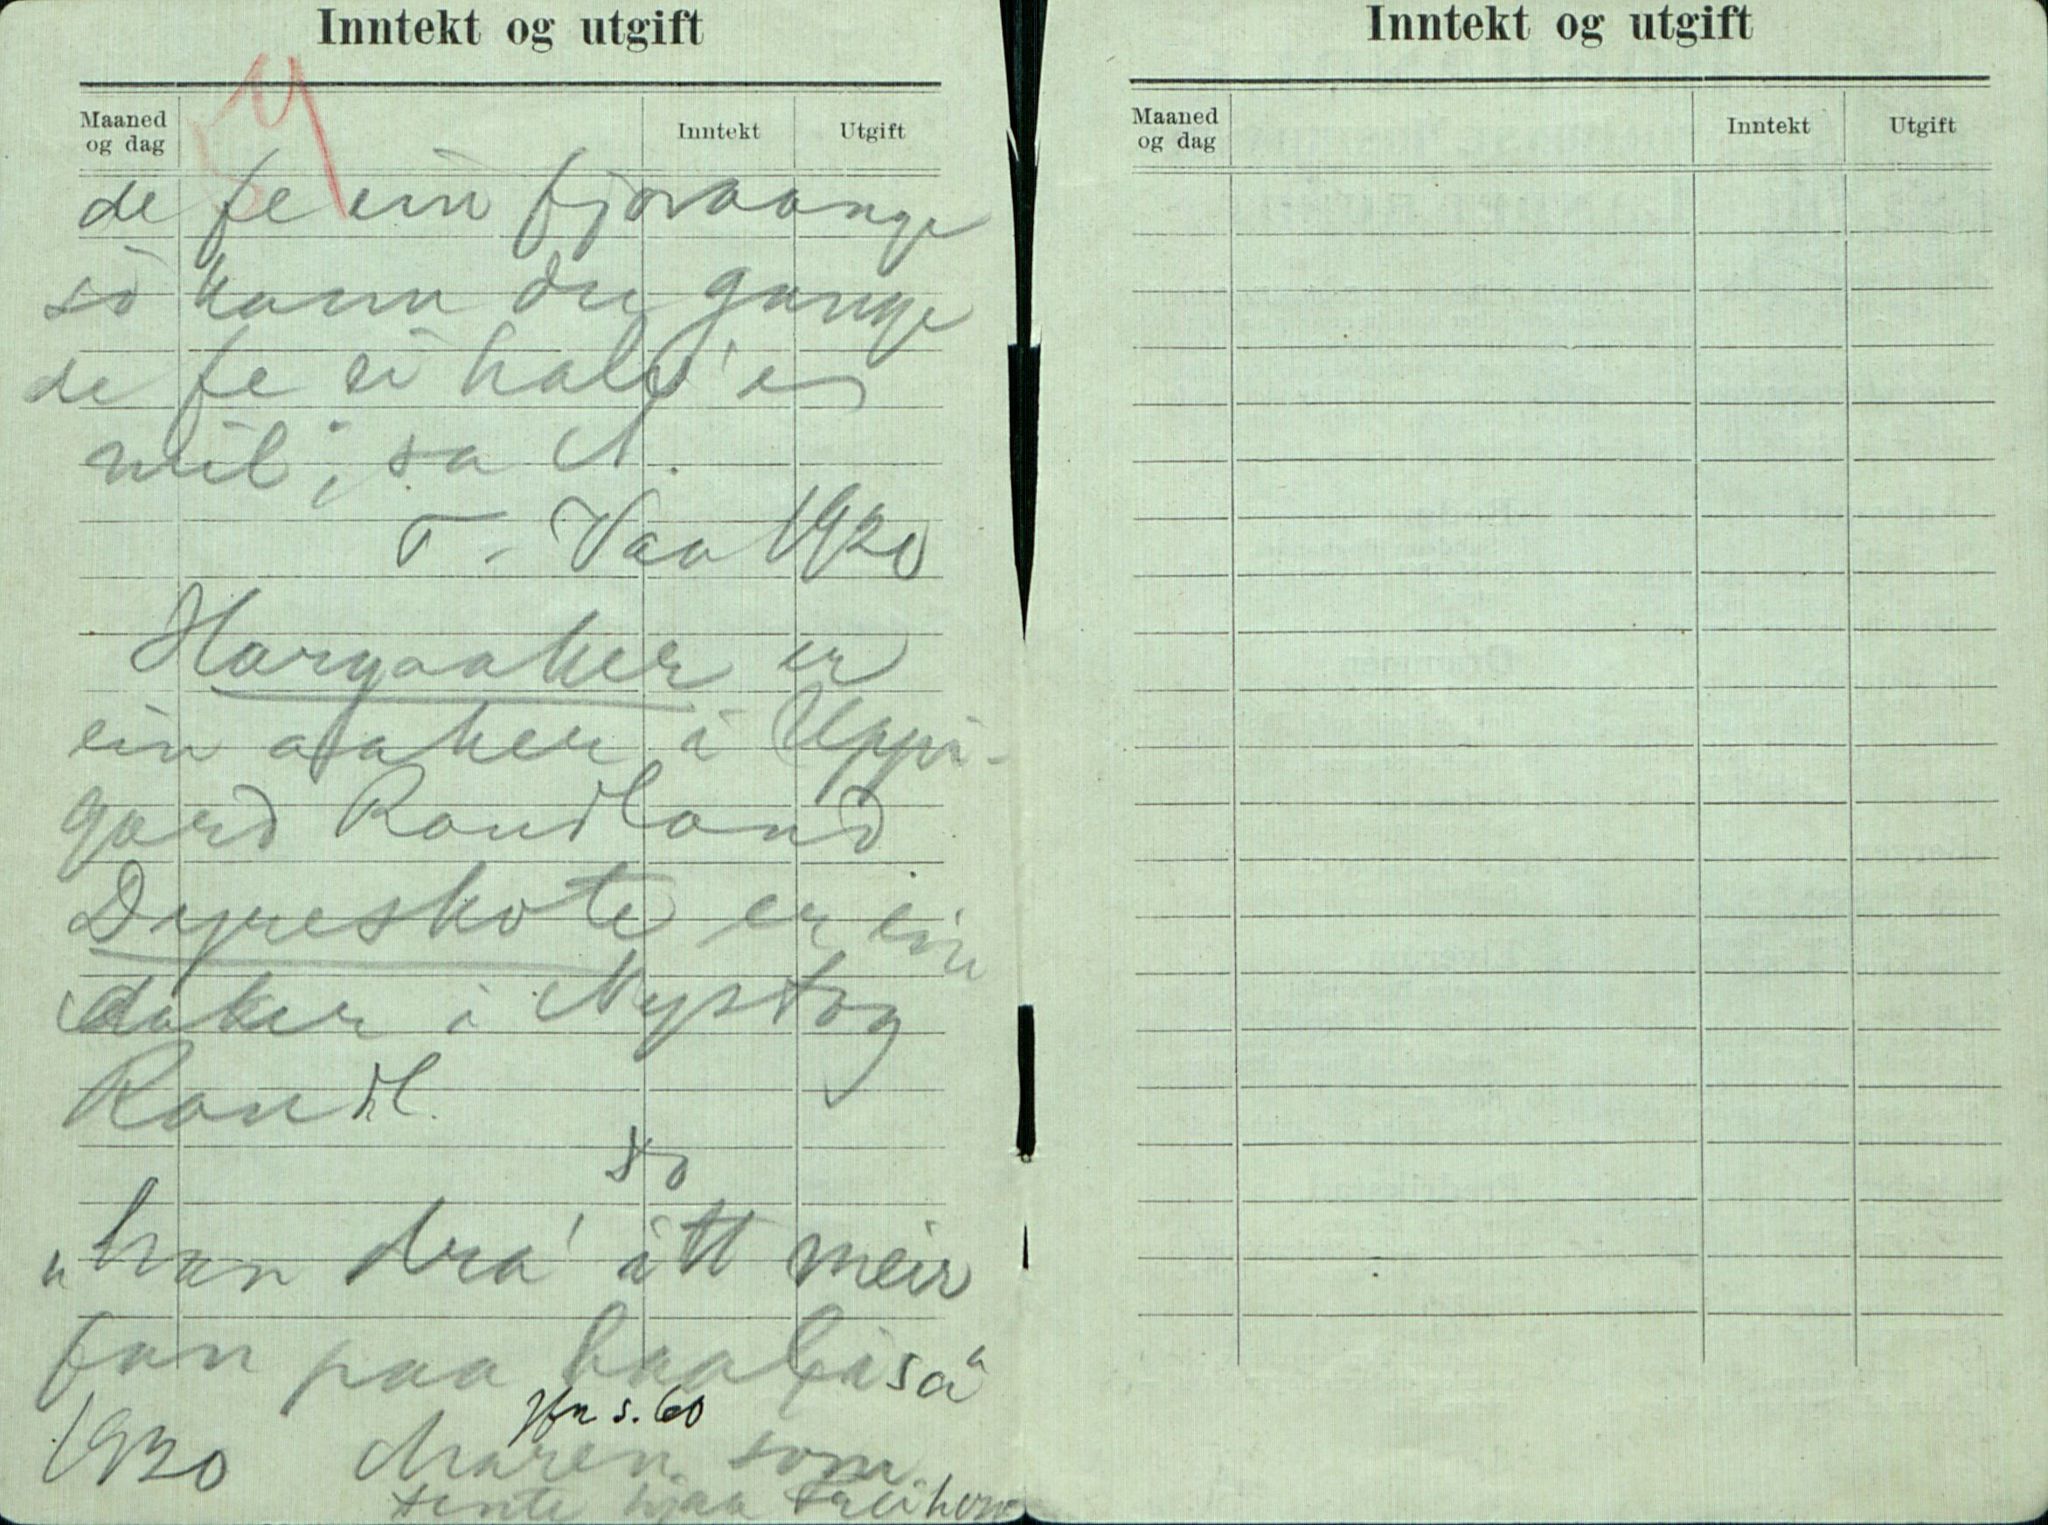 Inntekt og utgift
Maaned
og dag
Inntekt
Utgift
de fe ein fjoraange
so kann du gange
de fe ei halv' ei
mil", sa A.
T. Vaa 1920
Horgaaker er
ein aaker i Uppi-
gard Roudland
Dyreskote er ein
aaker i Nystog
Roudl.
so
"han dra' itt meir
fan paa
sa"
Jfr s. 60
1920 Maren som
tente hjaa
Inntekt og utgift
Maaned
og dag
Inntekt
Utgift